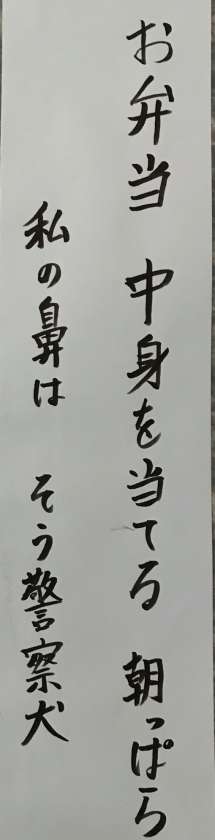 お弁当　中身を当てる　朝っぱら
私の鼻は　そう警察犬